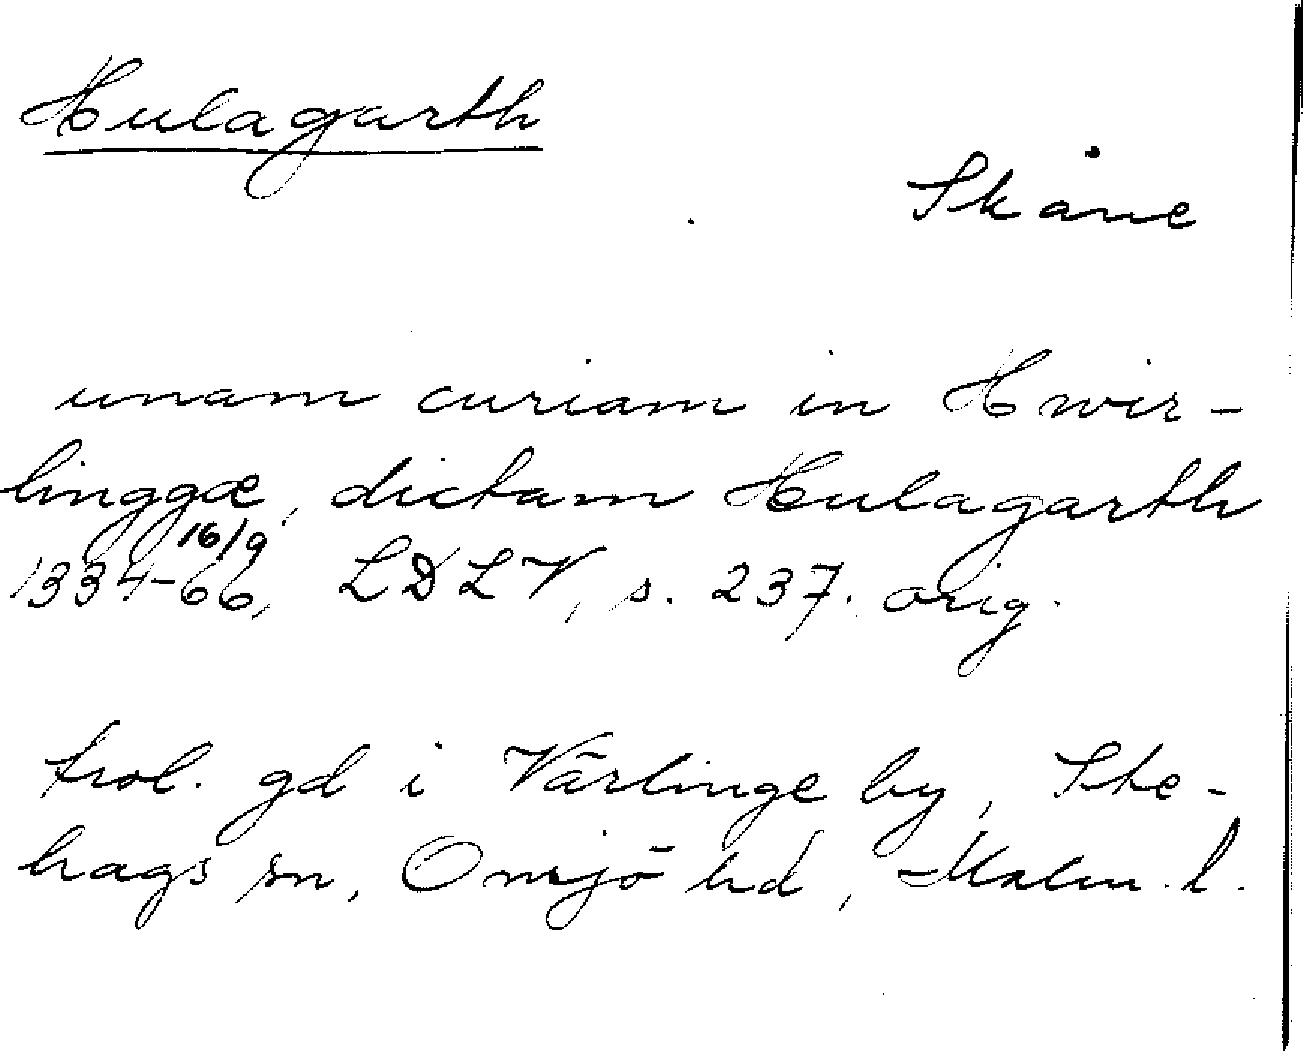 Hulagarth
Skåne
unam curiam in Hwir-
linggæ, dictam Hulagarth
16/9
1334-66, LDLV, s. 237. orig.
trol. gd i Värlinge by, Ste-
hags sn, Onsjö hd, Malm. l.